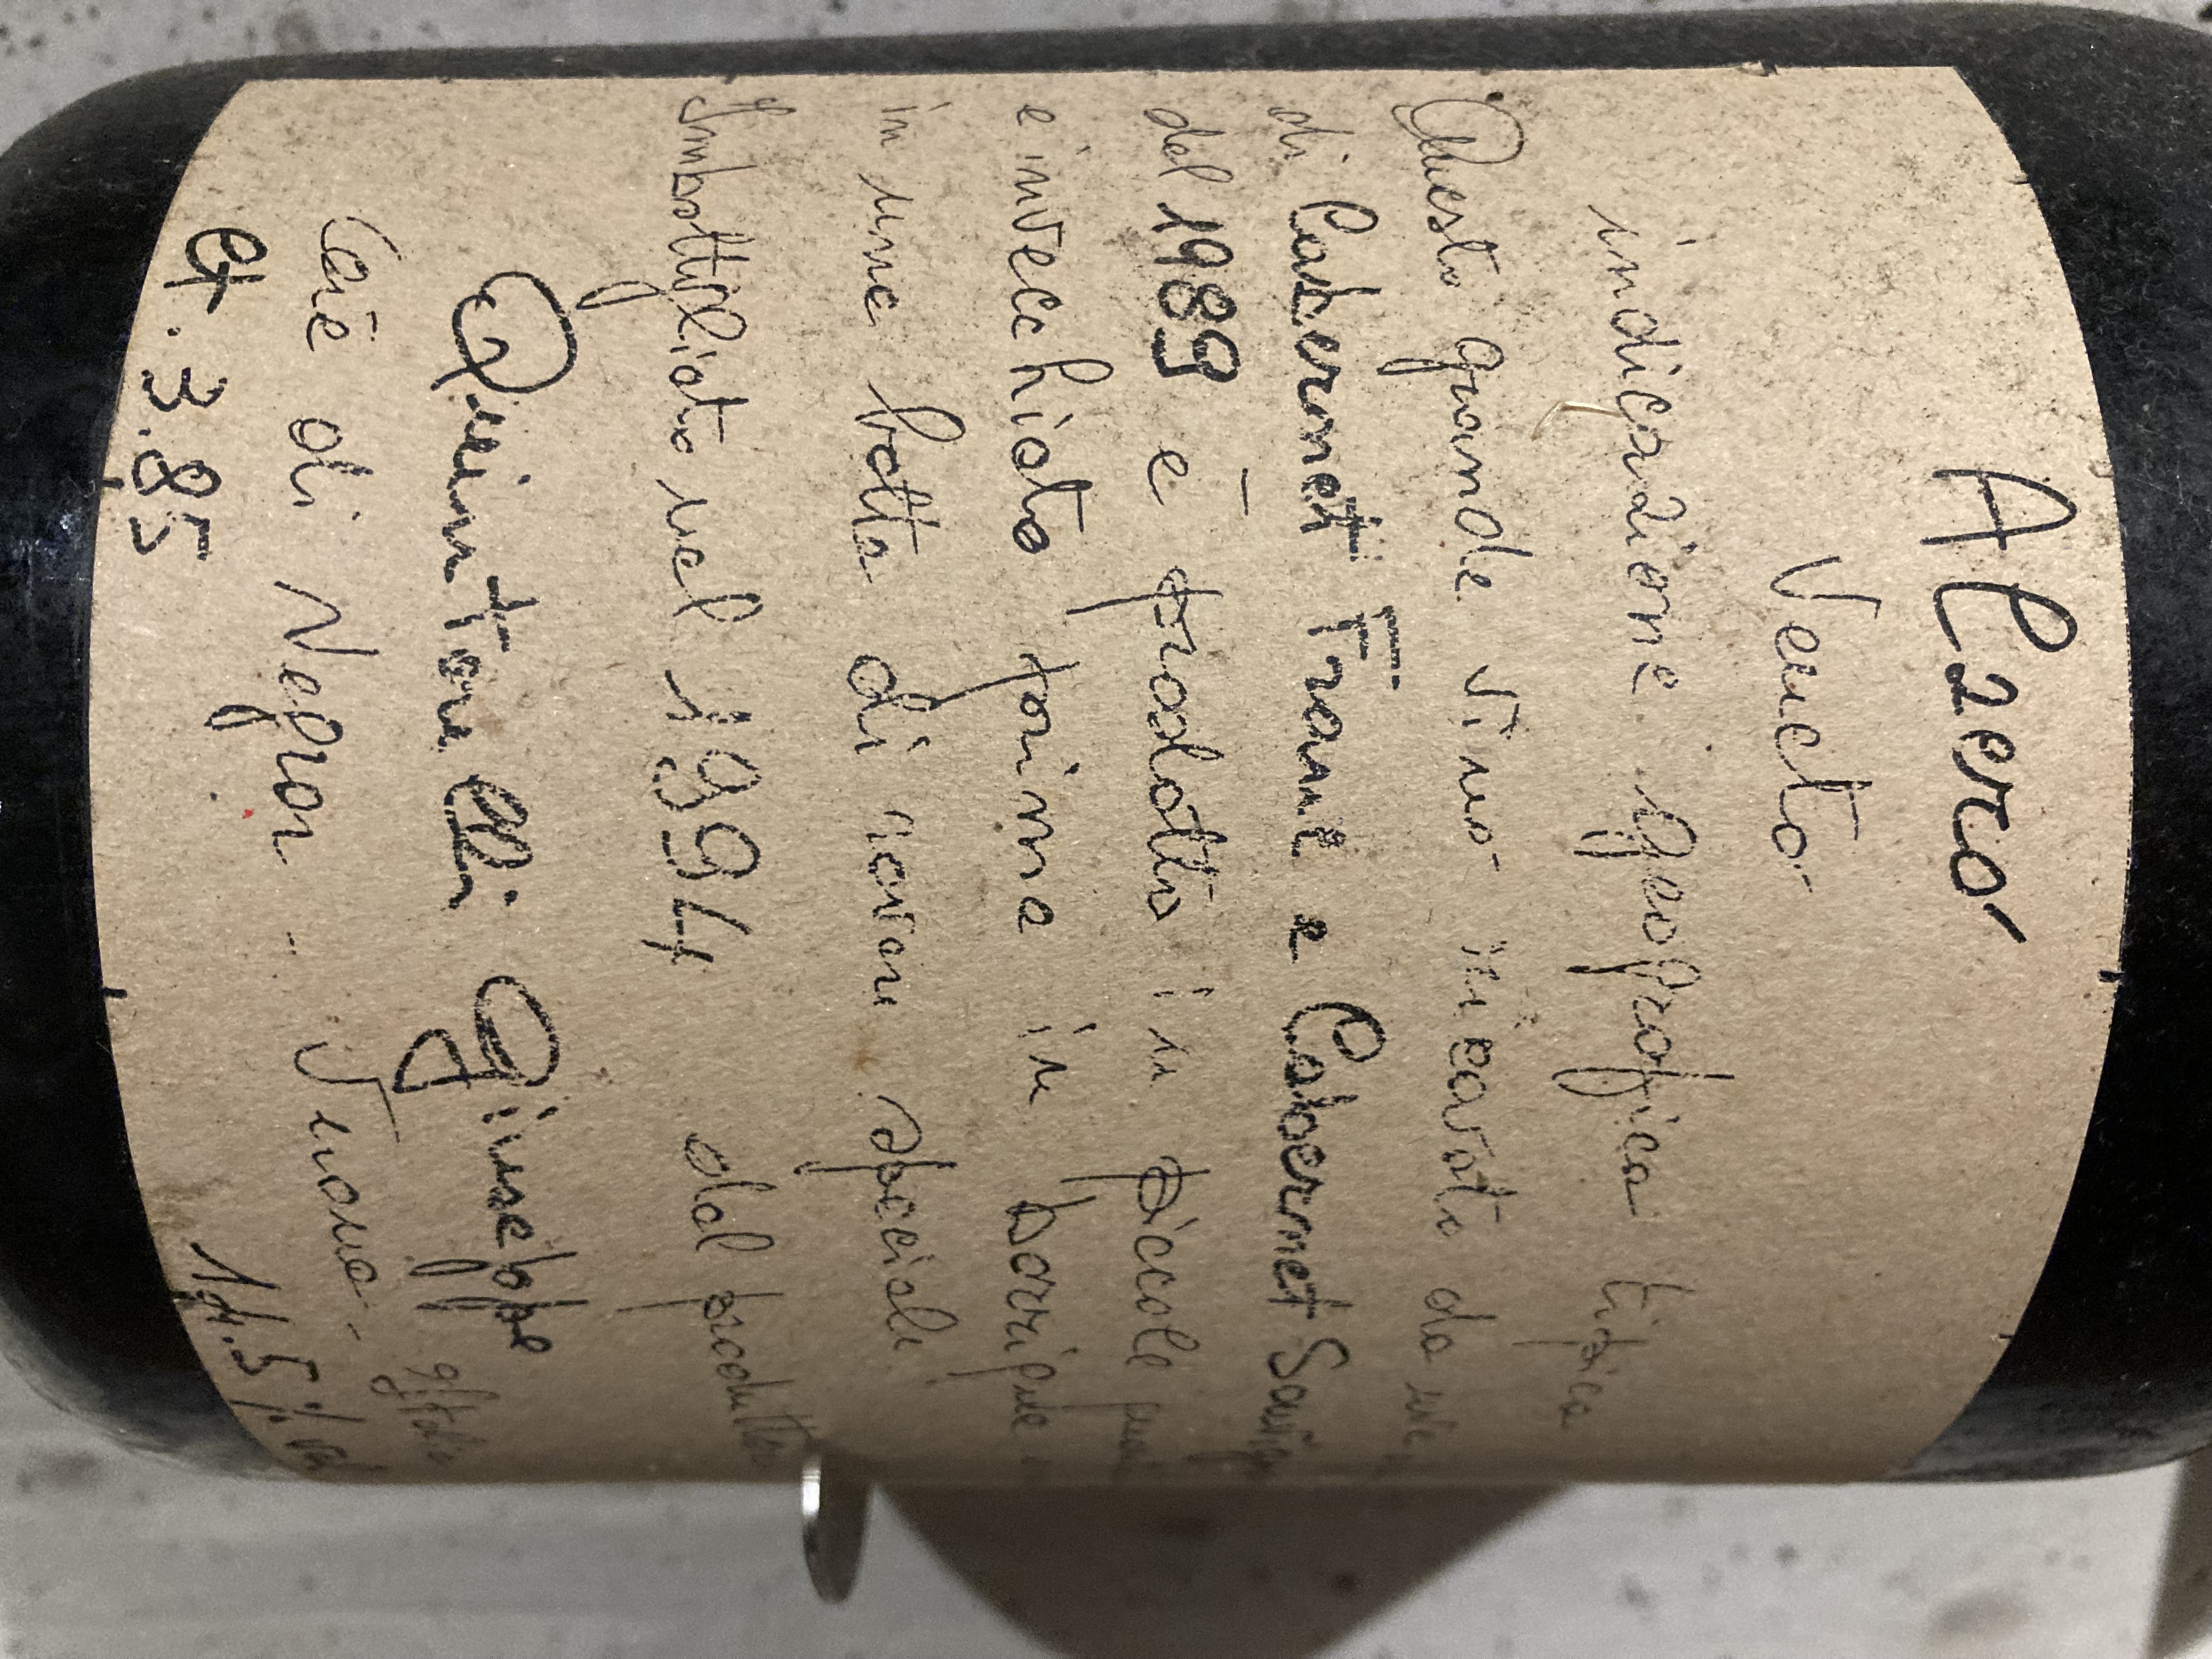 Alzero
Veneto
indicazione geografica tipica
Questo grande vino ricavato da uve
di Cabernet Franc e Cabernet Sauvig
del 1989 è prodotto in piccole quant
e invecchiato prima in barrique
in una botte di rovere speciale
Imbottigliato nel 1994 dal produtto
Quintarelli Giuseppe
Cerè di Negrar - Verona - Italia
Ct. 3.85 14.5% vol